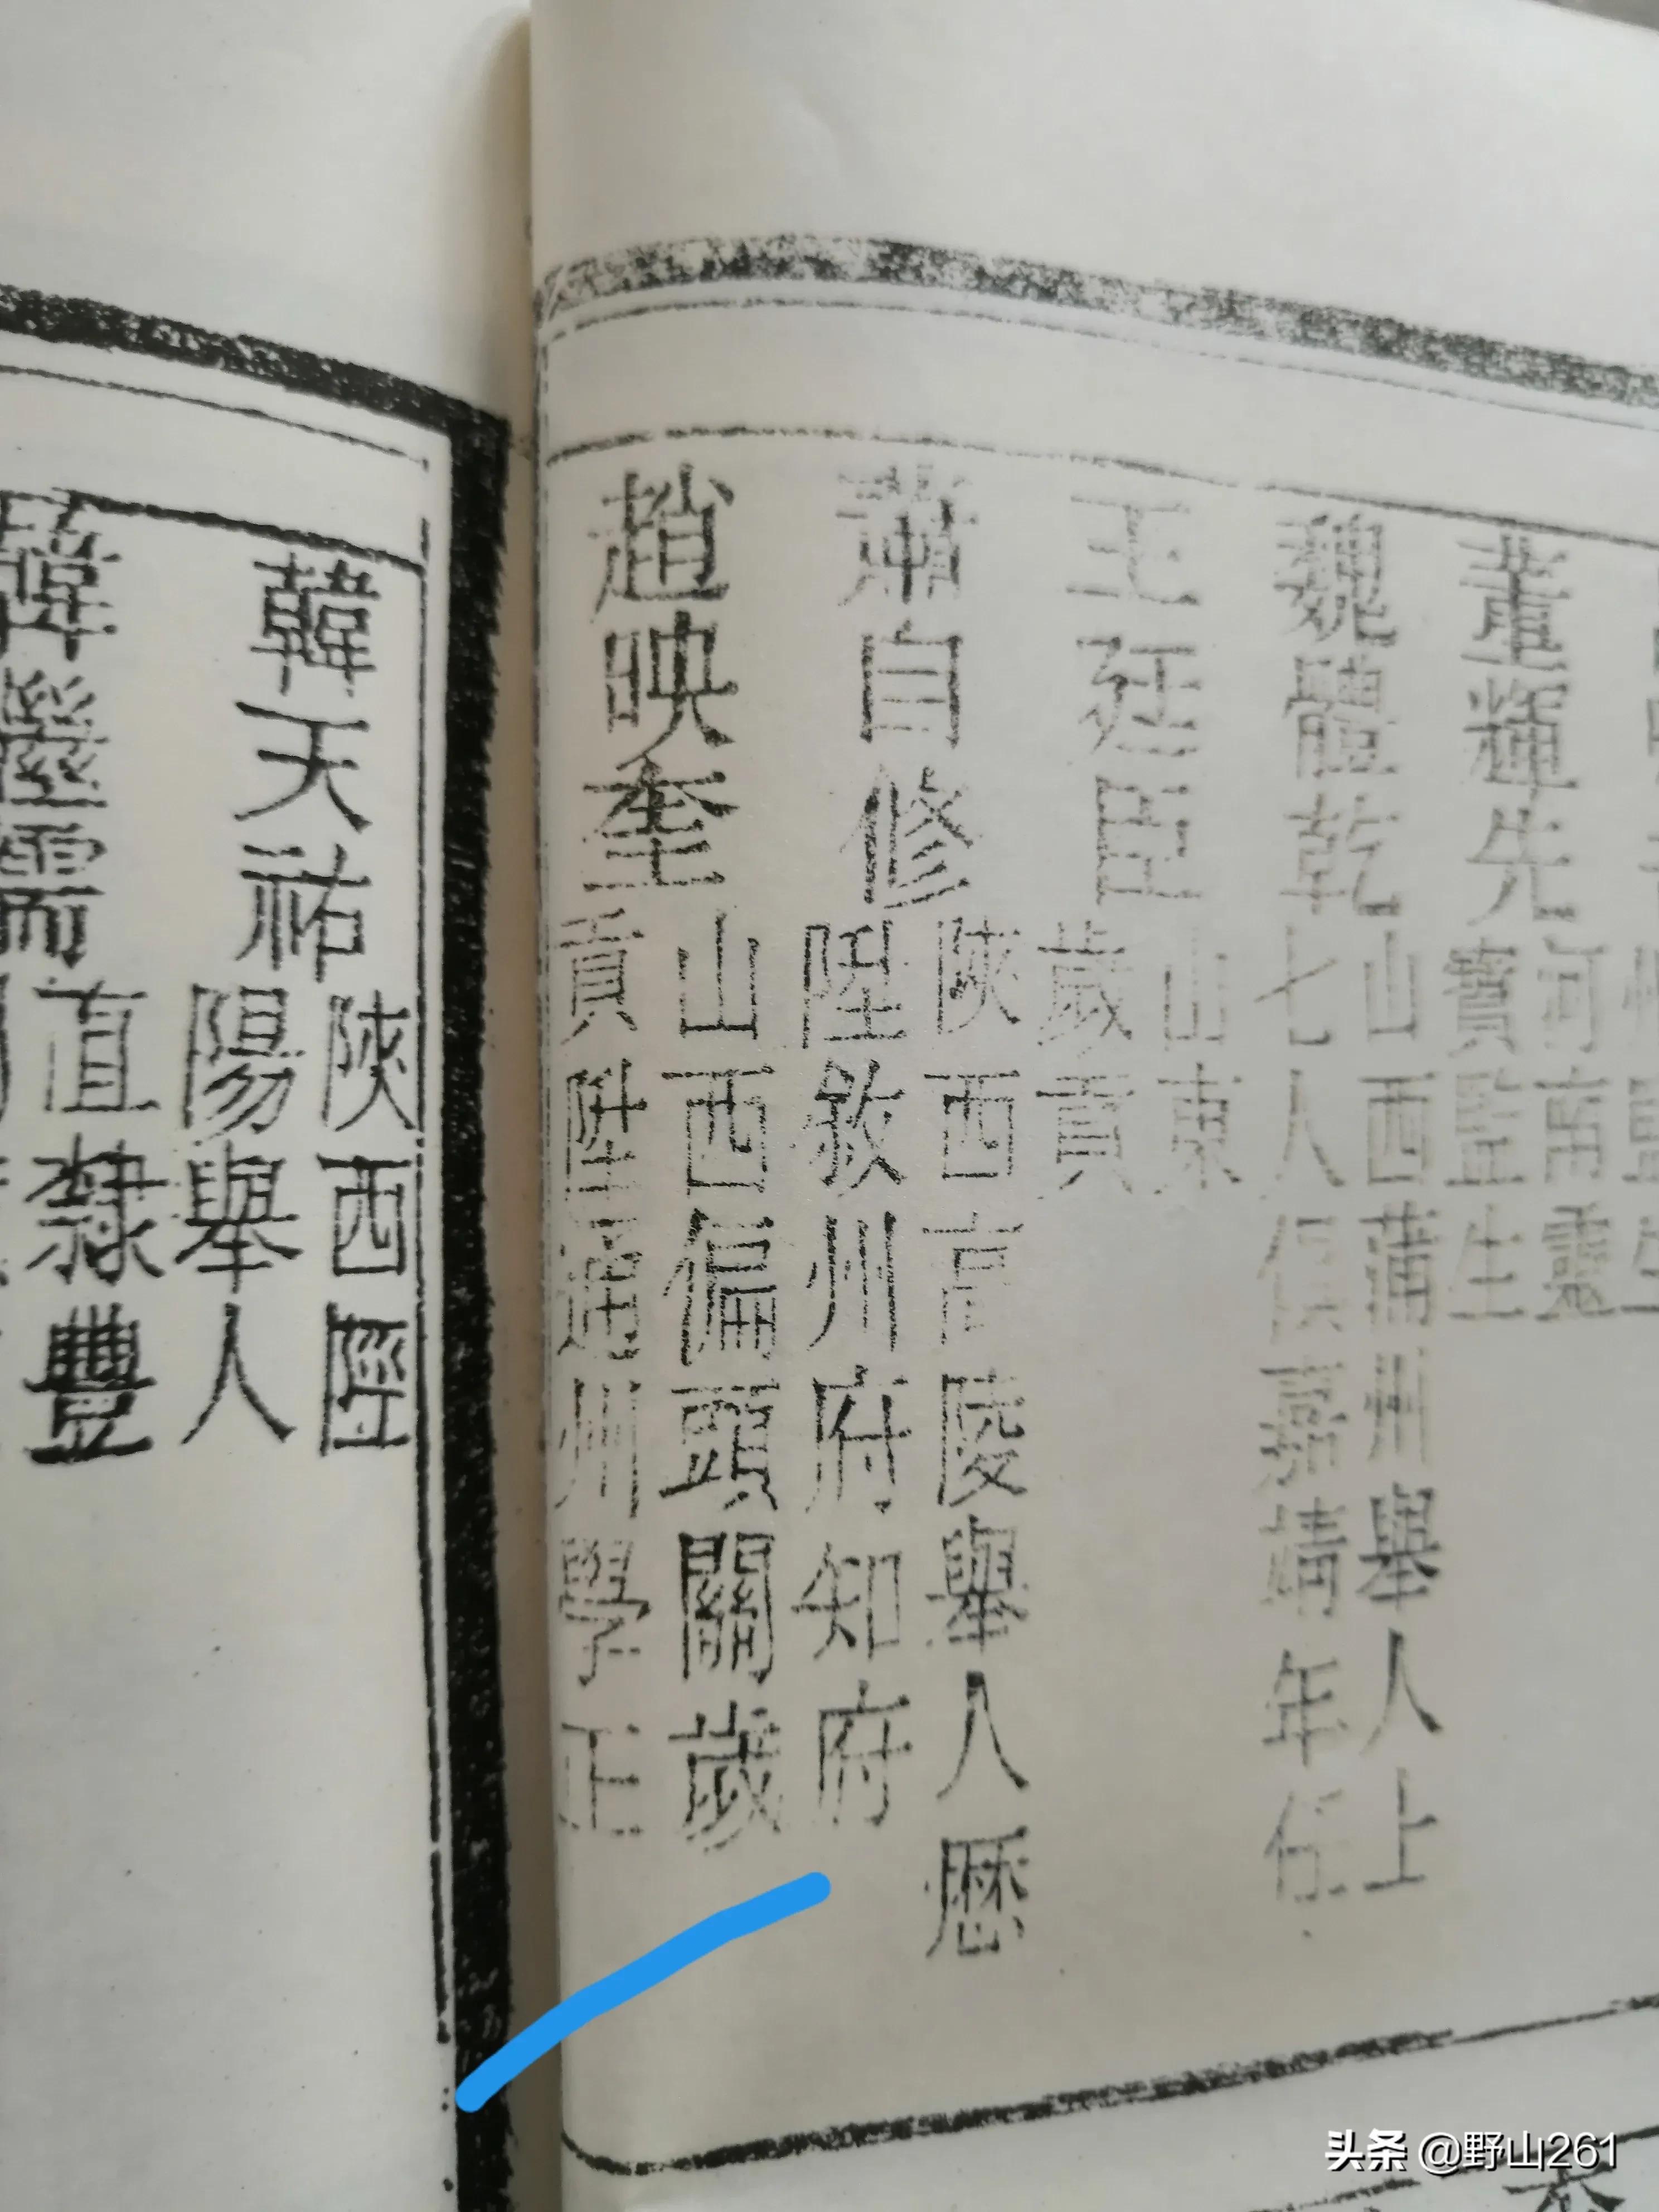 董輝先
河南靈
寶監生
魏體乾
山西蒲州舉人上
七人保嘉靖年任
王廷臣
山東
歲貢
蕭自修
陝西高陵舉人歷
陞敘州府知府
趙映奎
山西偏頭關歲
貢陞通州學正
韓天祐
陝西陘
陽舉人
韓
直隸豐
头条 @野山261